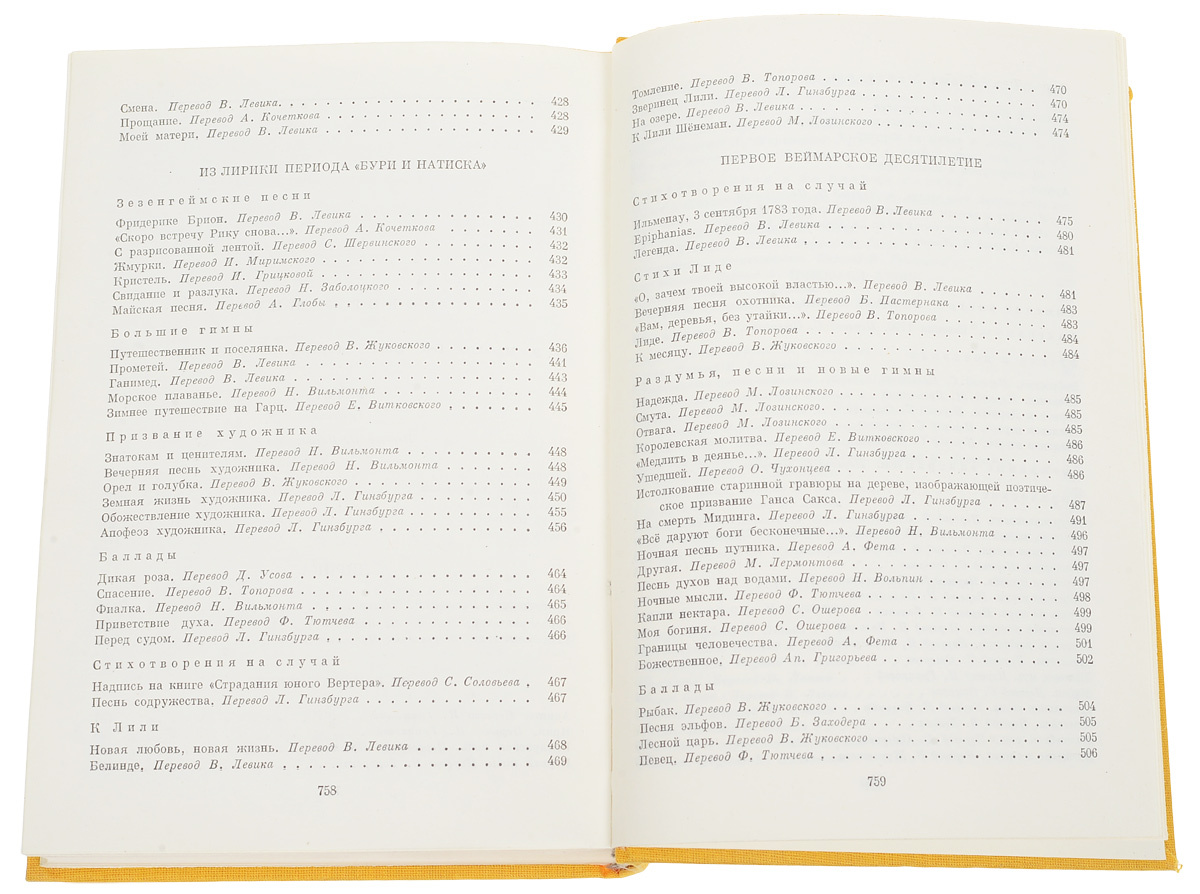 Смена. Перевод В. Левика. 428
Прощание. Перевод А. Кочеткова 428
Моей матери. Перевод В. Левика 429
ИЗ ЛИРИКИ ПЕРИОДА «БУРИ И НАТИСКА»
Зезенгеймские песни
Фридерике Брион. Перевод В. Левика 430
«Скоро встречу Рику снова...». Перевод А. Кочеткова 431
С разрисованной лентой. Перевод С. Шервинского 432
Жмурки. Перевод И. Миримского 432
Кристель. Перевод И. Грицковой 433
Свидание и разлука. Перевод Н. Заболоцкого 434
Майская песня. Перевод А. Глобы 435
Большие гимны
Путешественник и поселянка. Перевод В. Жуковского 436
Прометей. Перевод В. Левика 441
Ганимед. Перевод В. Левика 443
Морское плаванье. Перевод Н. Вильмонта 444
Зимнее путешествие на Гарц. Перевод Е. Витковского 445
Призвание художника
Знатокам и ценителям. Перевод Н. Вильмонта 448
Вечерняя песнь художника. Перевод Н. Вильмонта 448
Орел и голубка. Перевод В. Жуковского 449
Земная жизнь художника. Перевод Л. Гинзбурга 450
Обожествление художника. Перевод Л. Гинзбурга 455
Апофеоз художника. Перевод Л. Гинзбурга 456
Баллады
Дикая роза. Перевод Д. Усова 464
Спасение. Перевод В. Топорова 464
Фиалка. Перевод Н. Вильмонта 465
Приветствие духа. Перевод Ф. Тютчева 466
Перед судом. Перевод Л. Гинзбурга 466
Стихотворения на случай
Надпись на книге «Страдания юного Вертера». Перевод С. Соловьева 467
Песнь содружества. Перевод Л. Гинзбурга 467
К Лили
Новая любовь, новая жизнь. Перевод В. Левика 468
Белинде. Перевод В. Левика 469
758
Томление. Перевод В. Топорова 470
Зверинец Лили. Перевод Л. Гинзбурга 470
На озере. Перевод В. Левика 474
К Лили Шёнеман. Перевод М. Лозинского 474
ПЕРВОЕ ВЕЙМАРСКОЕ ДЕСЯТИЛЕТИЕ
Стихотворения на случай
Ильменау, 3 сентября 1783 года. Перевод В. Левика 475
Epiphanias. Перевод В. Левика 480
Легенда. Перевод В. Левика 481
Стихи Лиде
«О, зачем твоей высокой властью...». Перевод В. Левика 481
Вечерняя песня охотника. Перевод Б. Пастернака 483
«Вам, деревья, без утайки...». Перевод В. Топорова 483
Лиде. Перевод В. Топорова 484
К месяцу. Перевод В. Жуковского 484
Раздумья, песни и новые гимны
Надежда. Перевод М. Лозинского 485
Смута. Перевод М. Лозинского. 485
Отвага. Перевод М. Лозинского 485
Королевская молитва. Перевод Е. Витковского 486
«Медлить в деянье...». Перевод Л. Гинзбурга 486
Ушедшей. Перевод О. Чухонцева 486
Истолкование старинной гравюры на дереве, изображающей поэтиче-
ское призвание Ганса Сакса. Перевод Л. Гинзбурга 487
На смерть Мидинга. Перевод Л. Гинзбурга 491
«Всё даруют боги бесконечные...». Перевод Н. Вильмонта 496
Ночная песнь путника. Перевод А. Фета 497
Другая. Перевод М. Лермонтова 497
Песнь духов над водами. Перевод Н. Вольпин 497
Ночные мысли. Перевод Ф. Тютчева 498
Капли нектара. Перевод С. Ошерова 499
Моя богиня. Перевод С. Ошерова 499
Границы человечества. Перевод А. Фета 501
Божественное. Перевод Ап. Григорьева 502
Баллады
Рыбак. Перевод В. Жуковского 504
Песня эльфов. Перевод Б. Заходера 505
Лесной царь. Перевод В. Жуковского 505
Певец. Перевод Ф. Тютчева 506
759